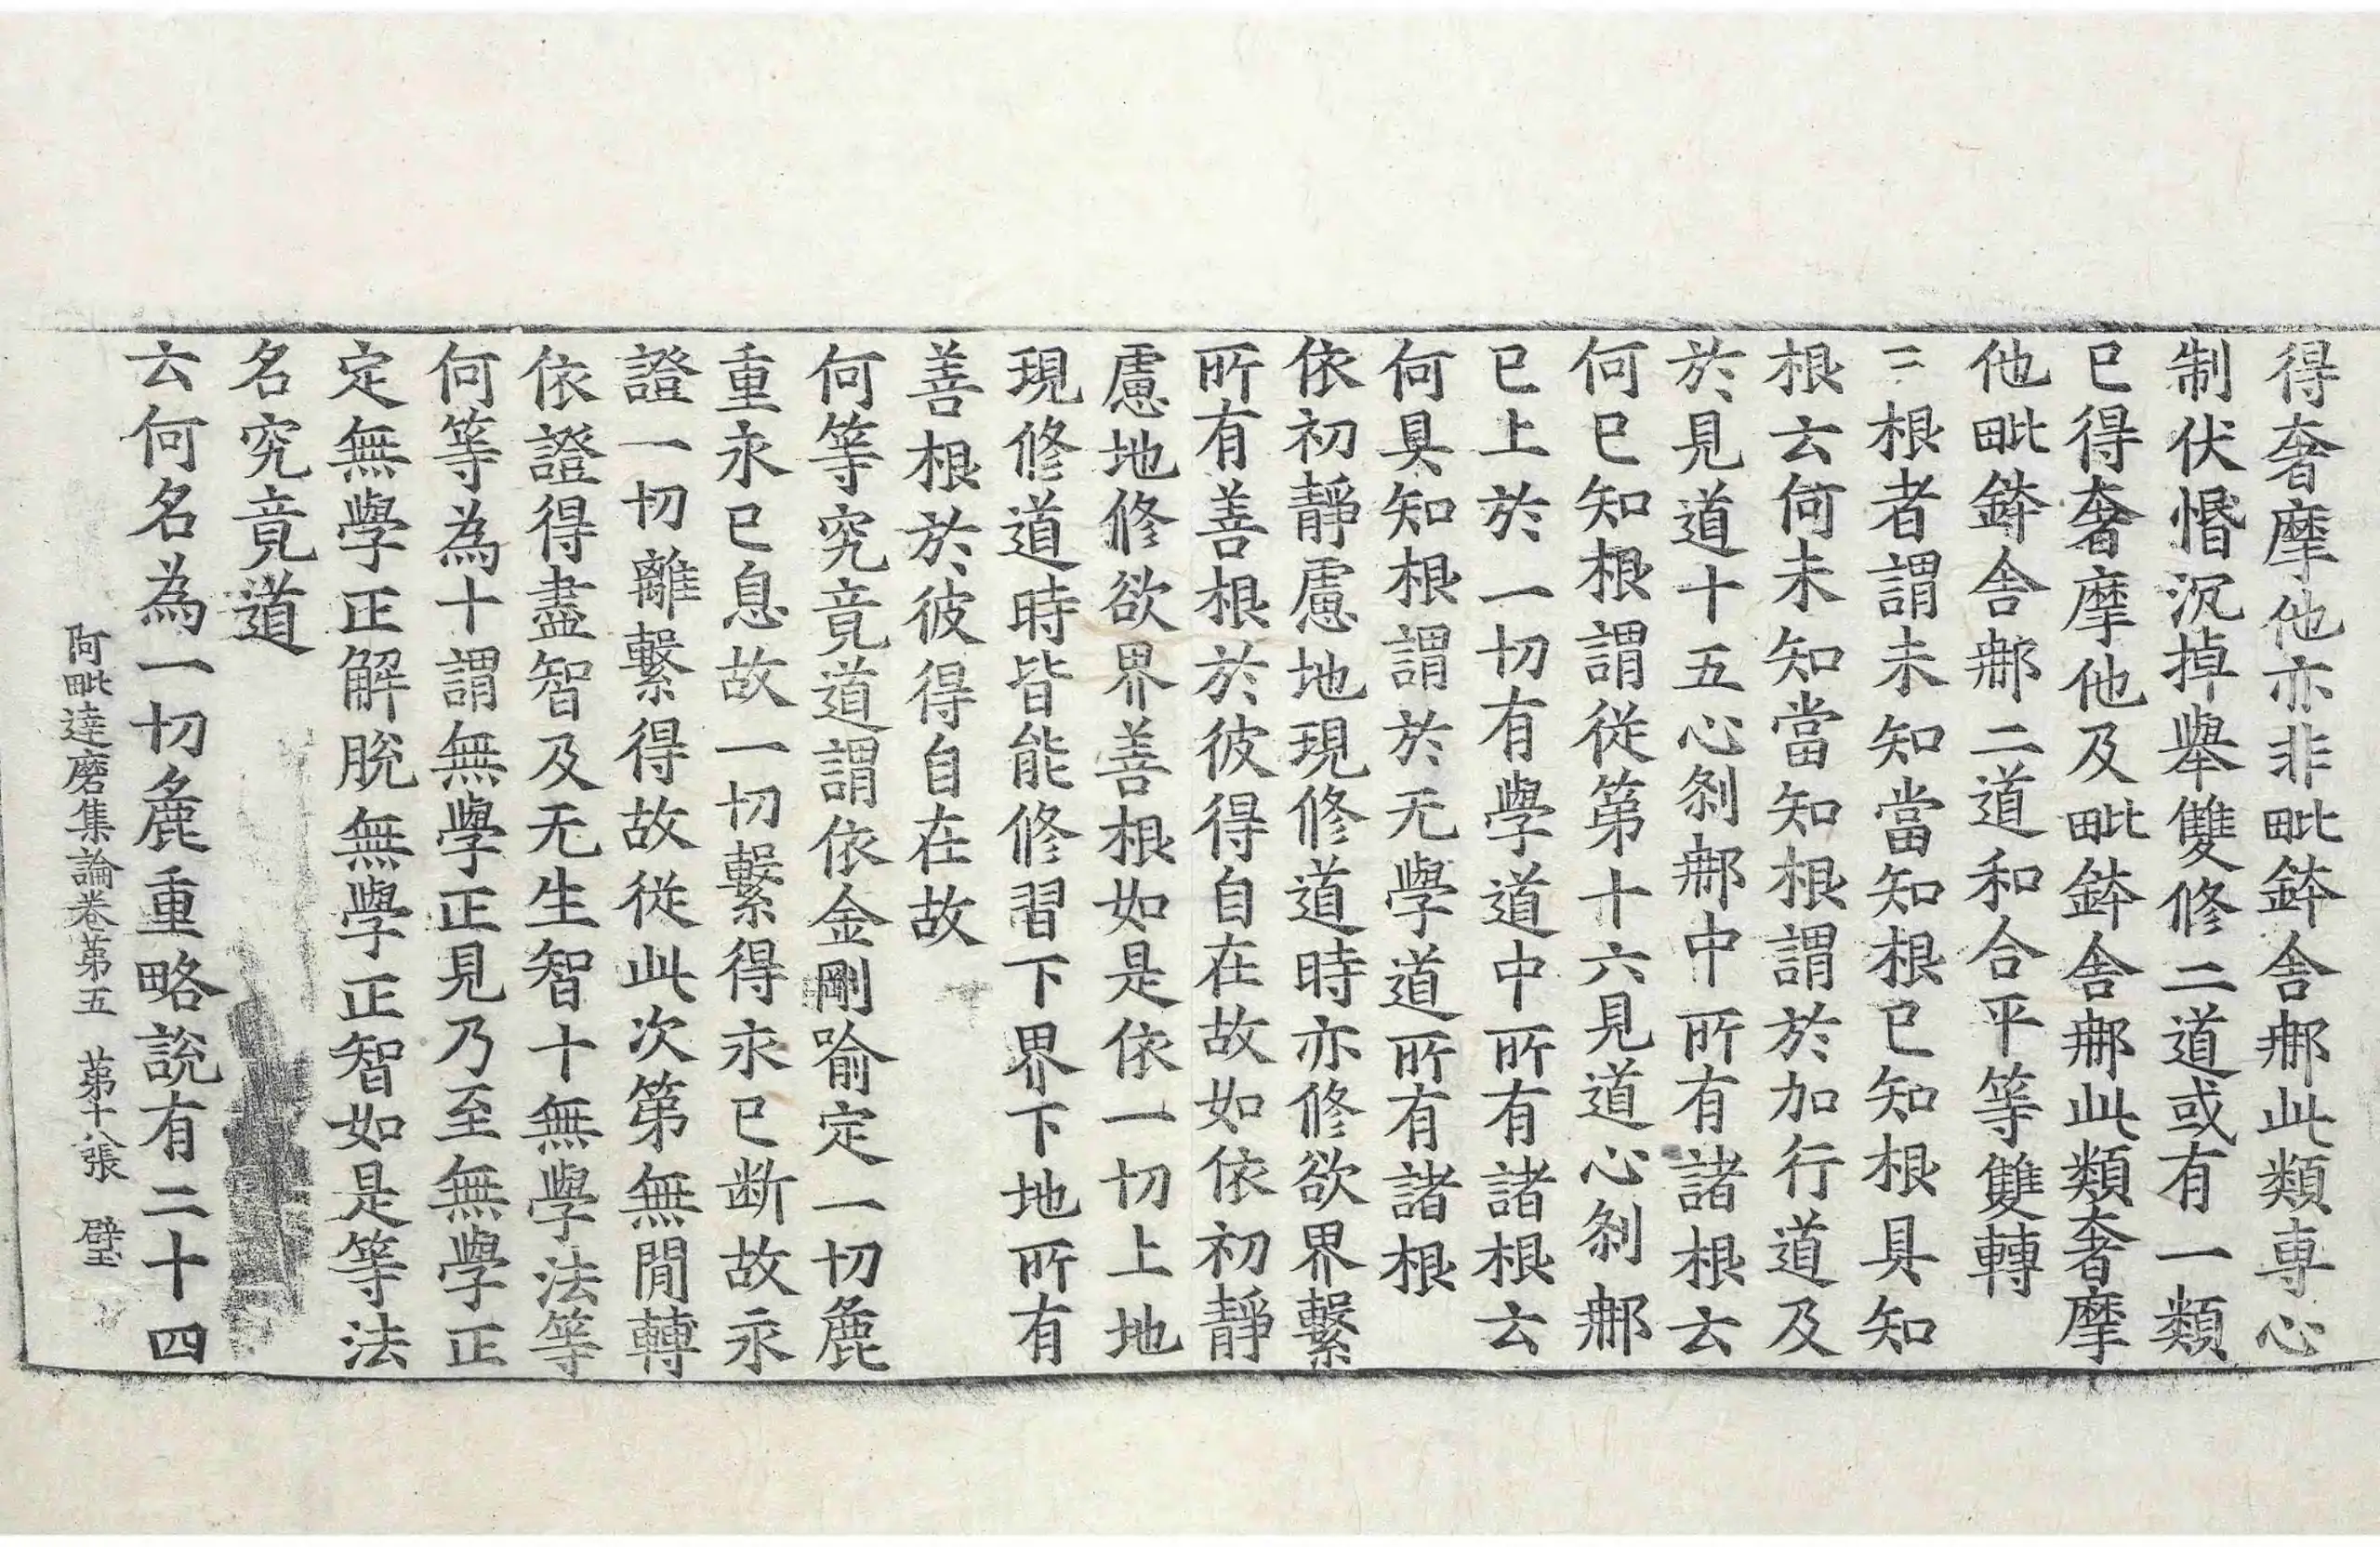 得奢摩他亦非毗鉢舍那此類專心
制伏惛沉掉舉雙修二道或有一類
已得奢摩他及毗鉢舍那此類奢摩
他毗鉢舍那二道和合平等雙轉
三根者謂未知當知根已知根具知
根云何未知當知根謂於加行道及
於見道十五心刹那中所有諸根云
何已知根謂從第十六見道心刹那
已上於一切有學道中所有諸根云
何具知根謂於无學道所有諸根
依初靜慮地現修道時亦修欲界繫
所有善根於彼得自在故如依初靜
慮地修欲界善根如是依一切上地
現修道時皆能修習下界下地所有
善根於彼得自在故
何等究竟道謂依金剛喻定一切麁
重永已息故一切繫得永已断故永
證一切離繫得故從此次第無間轉
依證得盡智及无生智十無學法等
何等為十謂無學正見乃至無學正
定無學正解脫無學正智如是等法
名究竟道
云何名為一切麁重略說有二十四
阿毗達磨集論卷第五 第十八張 璧